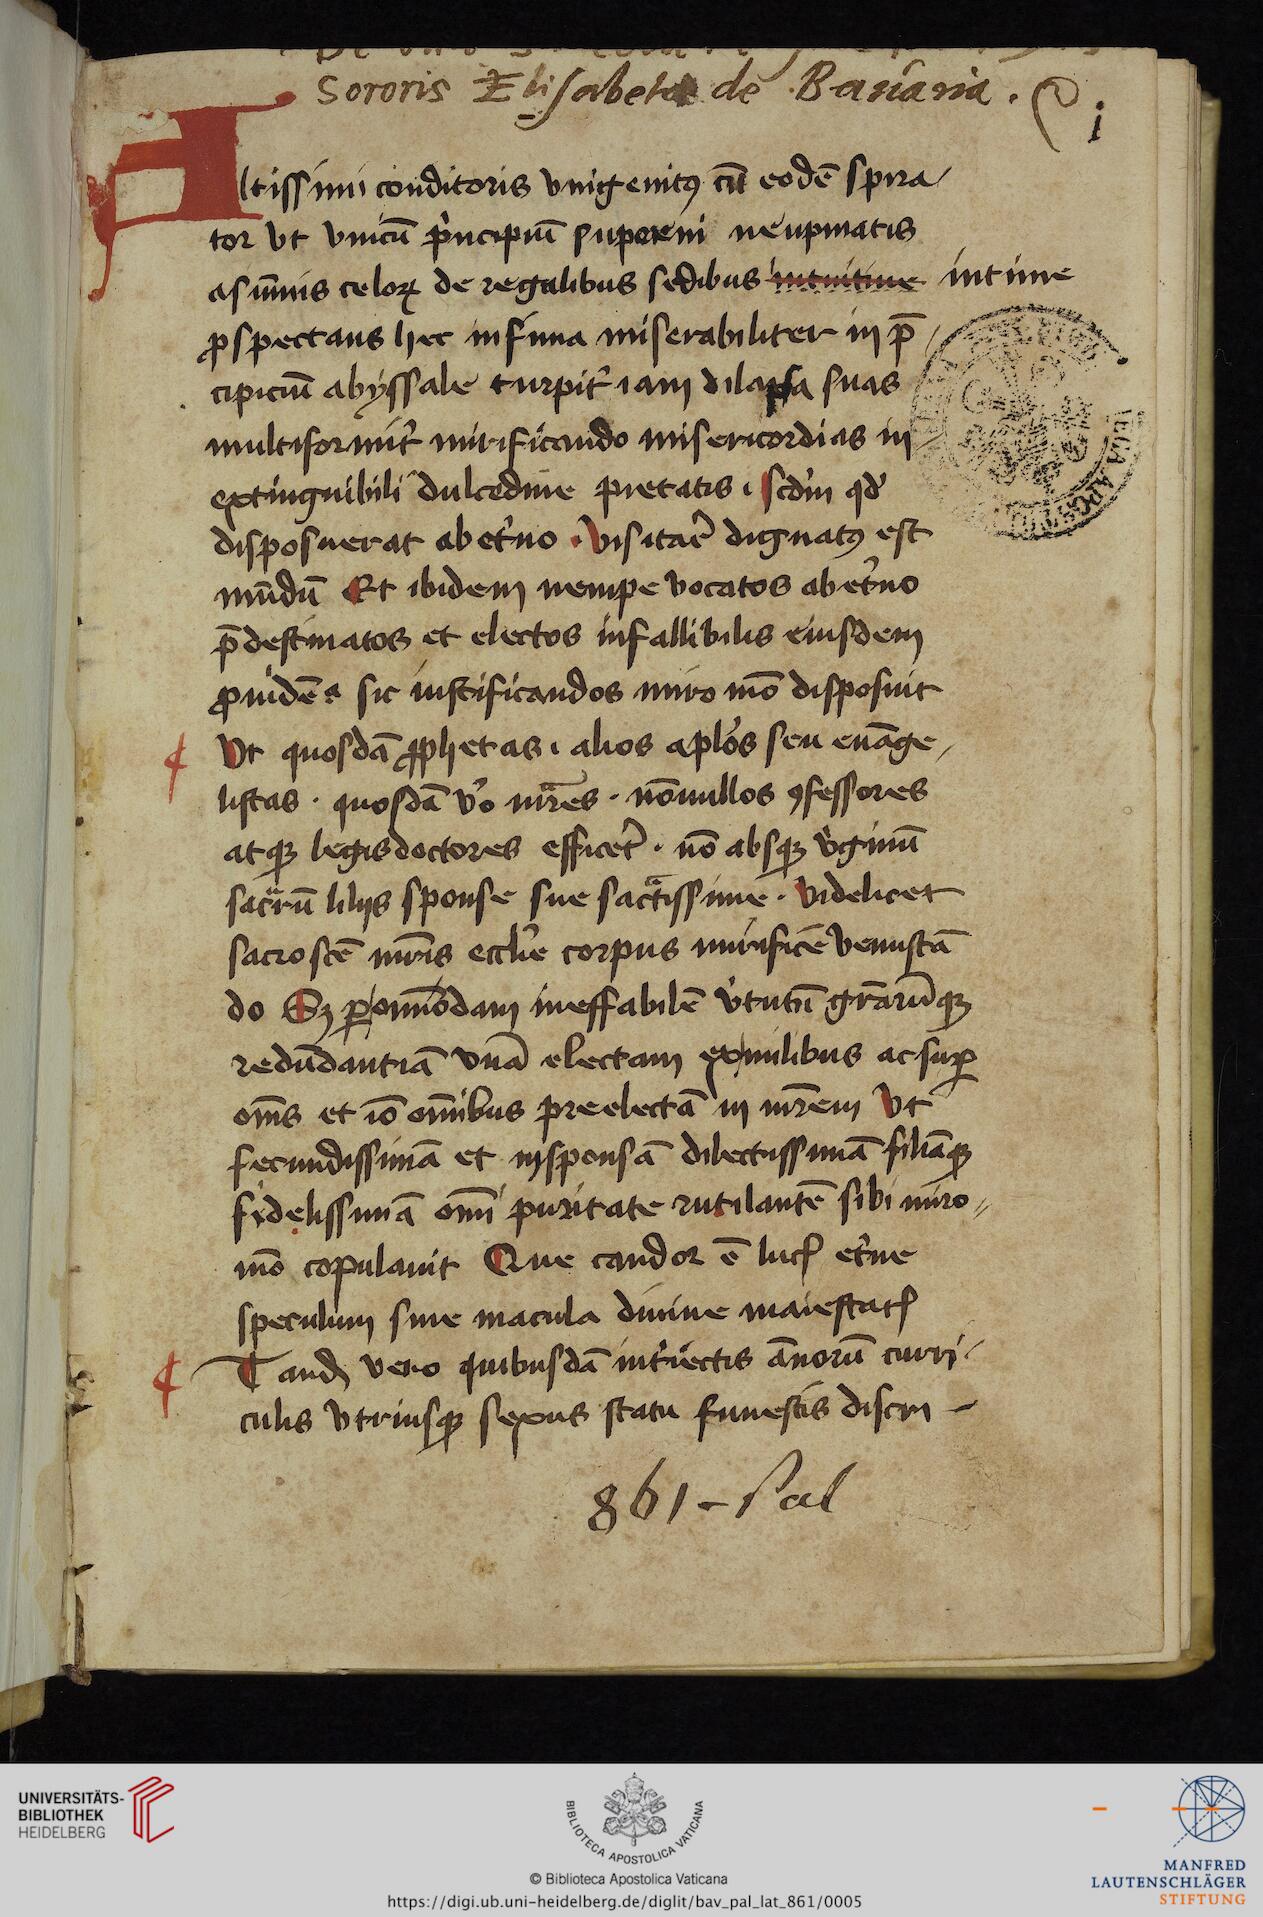 Sororis Elisabete de Bauaria .
i
Altissimi conditoris vnigenitꝯ cū eodē spira
tor vt vnicū pͥncipiū superni neupmatis
asūmis celoꝝ de regalibus sedibus intuitiue intime
ꝓspectans hec infima miserabiliter in p̄
cipiciū abyssale turpit͛ iam dilapsa suas
multiformit͛ mirificando misericordias in
extinguibili dulcedine pietatis . scd͛m qd͛
disposuerat ab et͛no . visitar͛ dignatꝯ est
mūdū Et ibidem nempe vocatos ab et͛no
p̄destinatos et electos infallibilis eiusdem
ꝓuidēe sic iustificandos miro mō disposuit
Vt quosdā ꝓphetas . alios apl͛os seu euāge
listas . quosdā v͛o mr̄es . nōnullos ꝯfessores
atqꝫ legisdoctores efficer͛ . nō absqꝫ v͛ginū
sacrarū lilijs sponse sue sactissime . videlicet
sacroscē mr̄is eccl͛ie corpus mirificē venustā
do Sꝫ ꝑ omnīodam ineffabilē v͛tutū gr̄arūqꝫ
redūdantiā vnā electam ex milibus ac suꝑ
om̄s et iō om̄ibus preelectā in mr̄em Vt
fecundissimā et insponsā dilectissimā filiāqꝫ
fidelissimā om̄i puritate rutilantē sibi miro
mō copulauit Que candor ē lucꝭ et͛ne
speculum sine macula diuine maiestatꝭ
Tandē vero quibusdā int͛iectis ānorū curri
culis vtriusqꝫ sexus statu funestis discri
861 - Pal
UNIVERSITÄTS-
BIBLIOTHEK
HEIDELBERG
BIBLIOTECA APOSTOLICA VATICANA
© Biblioteca Apostolica Vaticana
https://digi.ub.uni-heidelberg.de/diglit/bav_pal_lat_861/0005
MANFRED
LAUTENSCHLÄGER
STIFTUNG